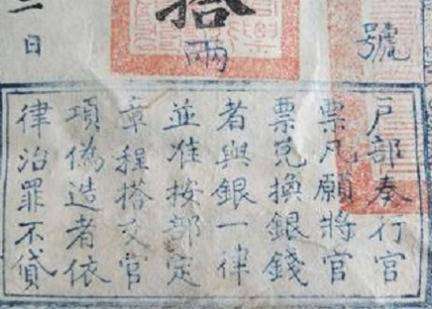 號
拾兩
日
户部奏行官
票凡願將官
票兌換銀錢
者與銀一律
並准按部定
章程搭交官
項偽造者依
律治罪不貸